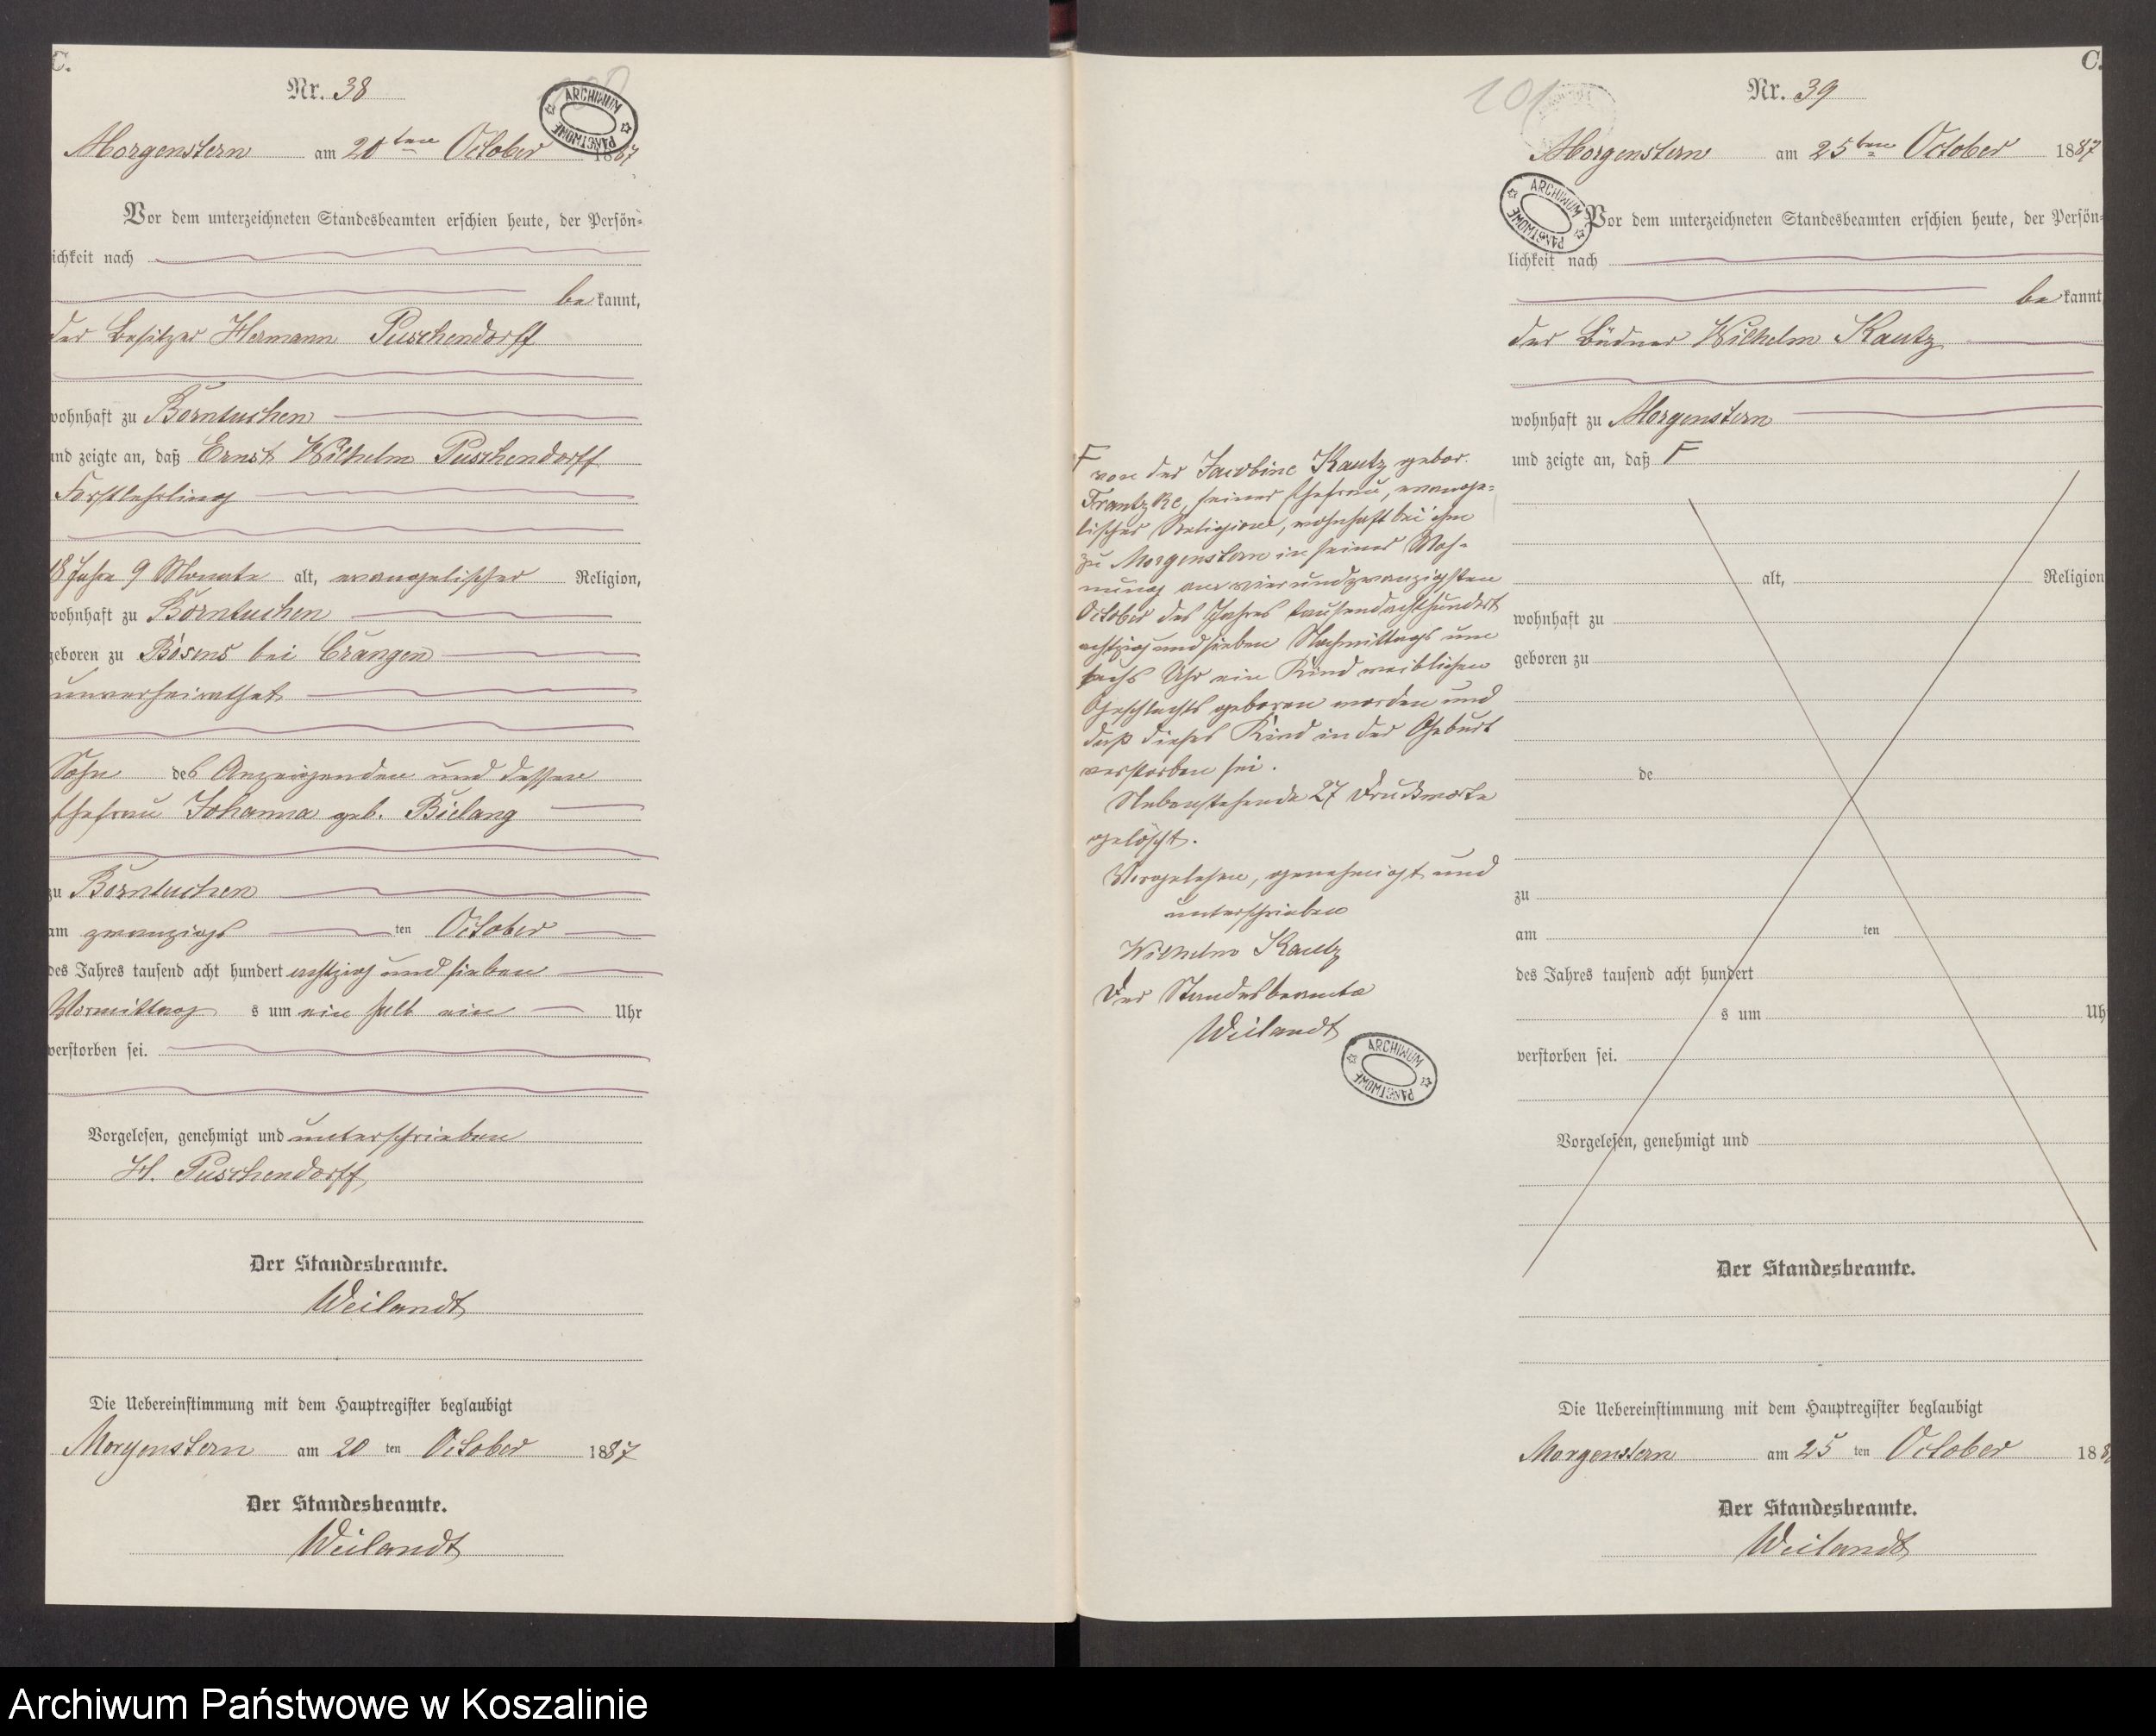 C.
Nr. 38
ARCHIWUM PAŃSTWOWE
Morgenstern am 20 ten October 1887
Vor dem unterzeichneten Standesbeamten erschien heute, der Persön-
lichkeit nach
be kannt,
der Besitzer Hermann Puschendorff
wohnhaft zu Borntuchen
und zeigte an, daß Ernst Wilhelm Puschendorff
Forstlehrling
18 Jahre 9 Monate alt, evangelischer Religion,
wohnhaft zu Borntuchen
geboren zu bei Crangen
unverheirathet
Sohn des Anzeigenden und dessen
Ehefrau Johanna geb. Bielang
zu Borntuchen
am zwanzigs ten October
des Jahres tausend acht hundert achtzig und sieben
Vormittag s um ein halb ein Uhr
verstorben sei.
Vorgelesen, genehmigt und unterschrieben
H. Puschendorff
Der Standesbeamte.
Weilandt
Die Uebereinstimmung mit dem Hauptregister beglaubigt
Morgenstern am 20 ten October 1887
Der Standesbeamte.
Weilandt
101
C.
Nr. 39
Morgenstern am 25 ten October 1887
ARCHIWUM PAŃSTWOWE
Vor dem unterzeichneten Standesbeamten erschien heute, der Persön-
lichkeit nach
be kannt
der Büdner Wilhelm Kautz
wohnhaft zu Morgenstern
und zeigte an, daß F
F von der Jacobine Kautz gebor.
Frantzke, seiner Ehefrau, evange-
lischer Religion, wohnhaft bei ihm
zu Morgenstern in seiner Woh-
nung am vierundzwanzigsten
October des Jahres tausendachthundert
achtzig und sieben Nachmittags um
sechs Uhr ein Kind weiblichen
Geschlechts geboren worden und
daß dieses Kind in der Geburt
verstorben sei.
Nebenstehende 27 Druckworte
gelöscht.
Vorgelesen, genehmigt und
unterschrieben
Wilhelm Kautz
Der Standesbeamte
Weilandt
ARCHIWUM PAŃSTWOWE
alt, Religion
wohnhaft zu
geboren zu
de
zu
am ten
des Jahres tausend acht hundert
s um Uh
verstorben sei.
Vorgelesen, genehmigt und
Der Standesbeamte.
Die Uebereinstimmung mit dem Hauptregister beglaubigt
Morgenstern am 25 ten October 188
Der Standesbeamte.
Weilandt
Archiwum Państwowe w Koszalinie